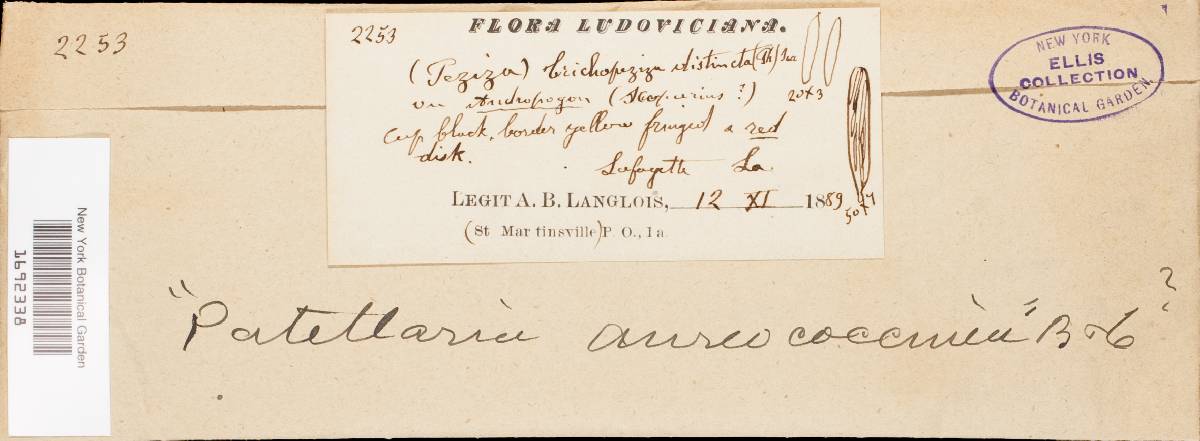 2253
FLORA LUDOVICIANA.
2253
(Peziza) trichopeziza distincta
on Andropogon (Scoparius ?)
20x3
cup black, border yellow fringed a red
disk.
Lafayette La.
LEGIT A. B. LANGLOIS, 12 XI 1889
50x4
(St Martinsville) P. O., La.
NEW YORK
ELLIS
COLLECTION
BOTANICAL GARDEN
New York Botanical Garden
1692338
"Patellaria aureococcinea" B&C ?